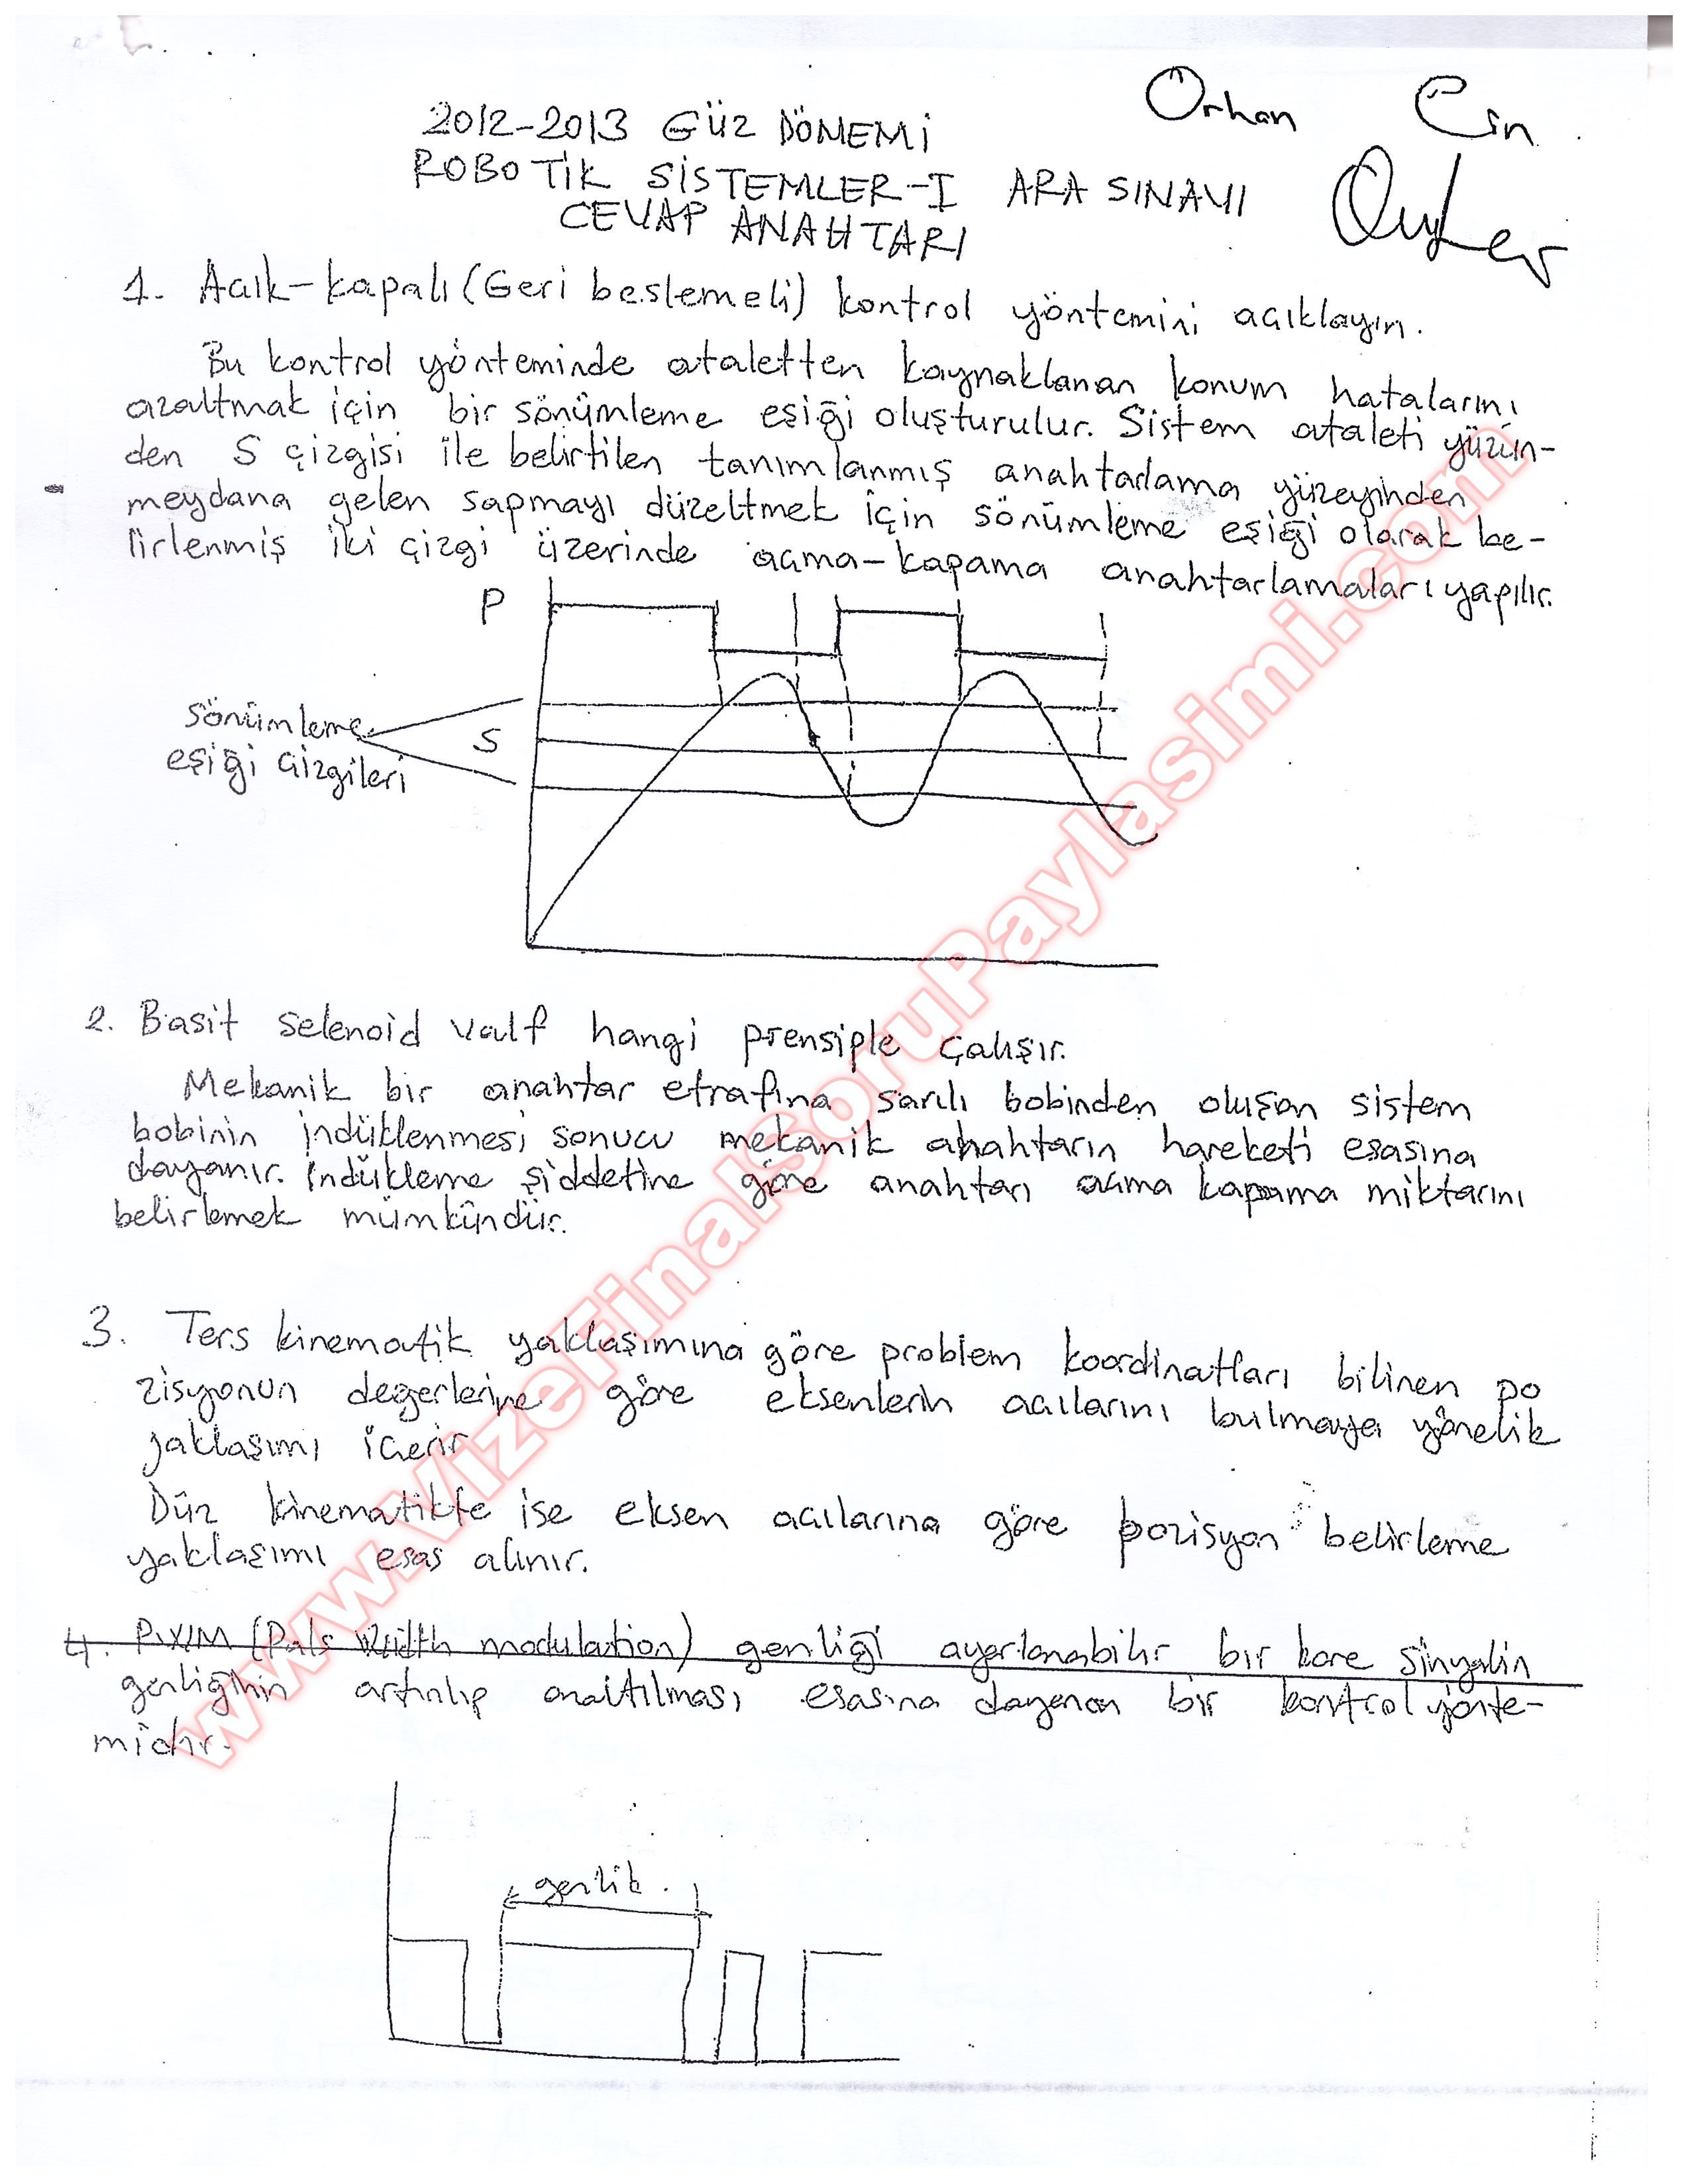 Orhan Cin
2012-2013 GÜZ DÖNEMİ
ROBOTİK SİSTEMLER-I ARA SINAVI
CEVAP ANAHTARI
1. Acık-kapalı (Geri beslemeli) kontrol yöntemini acıklayın.
Bu kontrol yönteminde ataletten kaynaklanan konum hatalarını
azaltmak için bir sönümleme eşiği oluşturulur. Sistem ataleti yüzün-
den S çizgisi ile belirtilen tanımlanmış anahtarlama yüzeyinden
meydana gelen sapmayı düzeltmek için sönümleme eşiği olarak be-
lirlenmiş iki çizgi üzerinde acma-kapama anahtarlamaları yapılır.
P
Sönümleme
eşiği Cizgileri
S
2. Basit selenoid valf hangi prensiple çalışır.
Mekanik bir anahtar etrafına sarılı bobinden oluşan sistem
bobinin indüklenmesi sonucu mekanik anahtarın hareketi esasına
dayanır. İndükleme şiddetine göre anahtarı acma kapama miktarını
belirlemek mümkündür.
3. Ters kinematik yaklaşımına göre problem koordinatları bilinen po
zisyonun degerlerine göre eksenlerin acılarını bulmaya yönelik
yaklaşımı icerir
Düz kinematikte ise eksen acılarına göre pozisyon belirleme
yaklaşımı esas alınır.
4. PWM (Pals Width modulation) genliği ayarlanabilir bir kare sinyalin
genliğinin artırılıp azaltılması esasına dayanan bir kontrol yönte-
midir.
genlik.
www.VizeFinalSoruPaylasimi.com